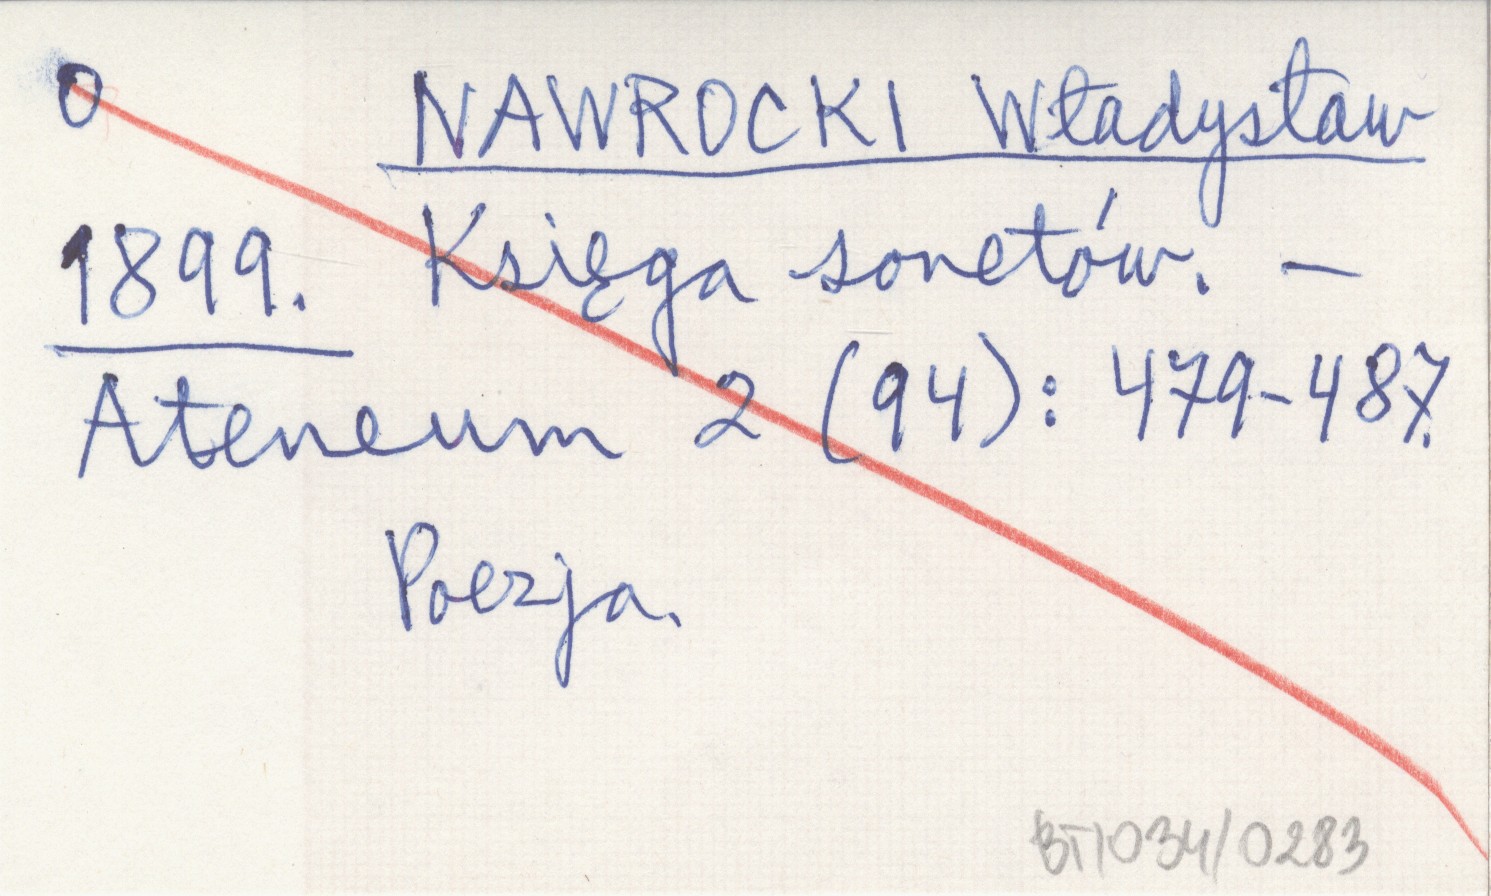 0 NAWROCKI Władysław
1899. Księga sonetów. –
Ateneum 2 (94): 479-487.
Poezja.
BT/034/0283